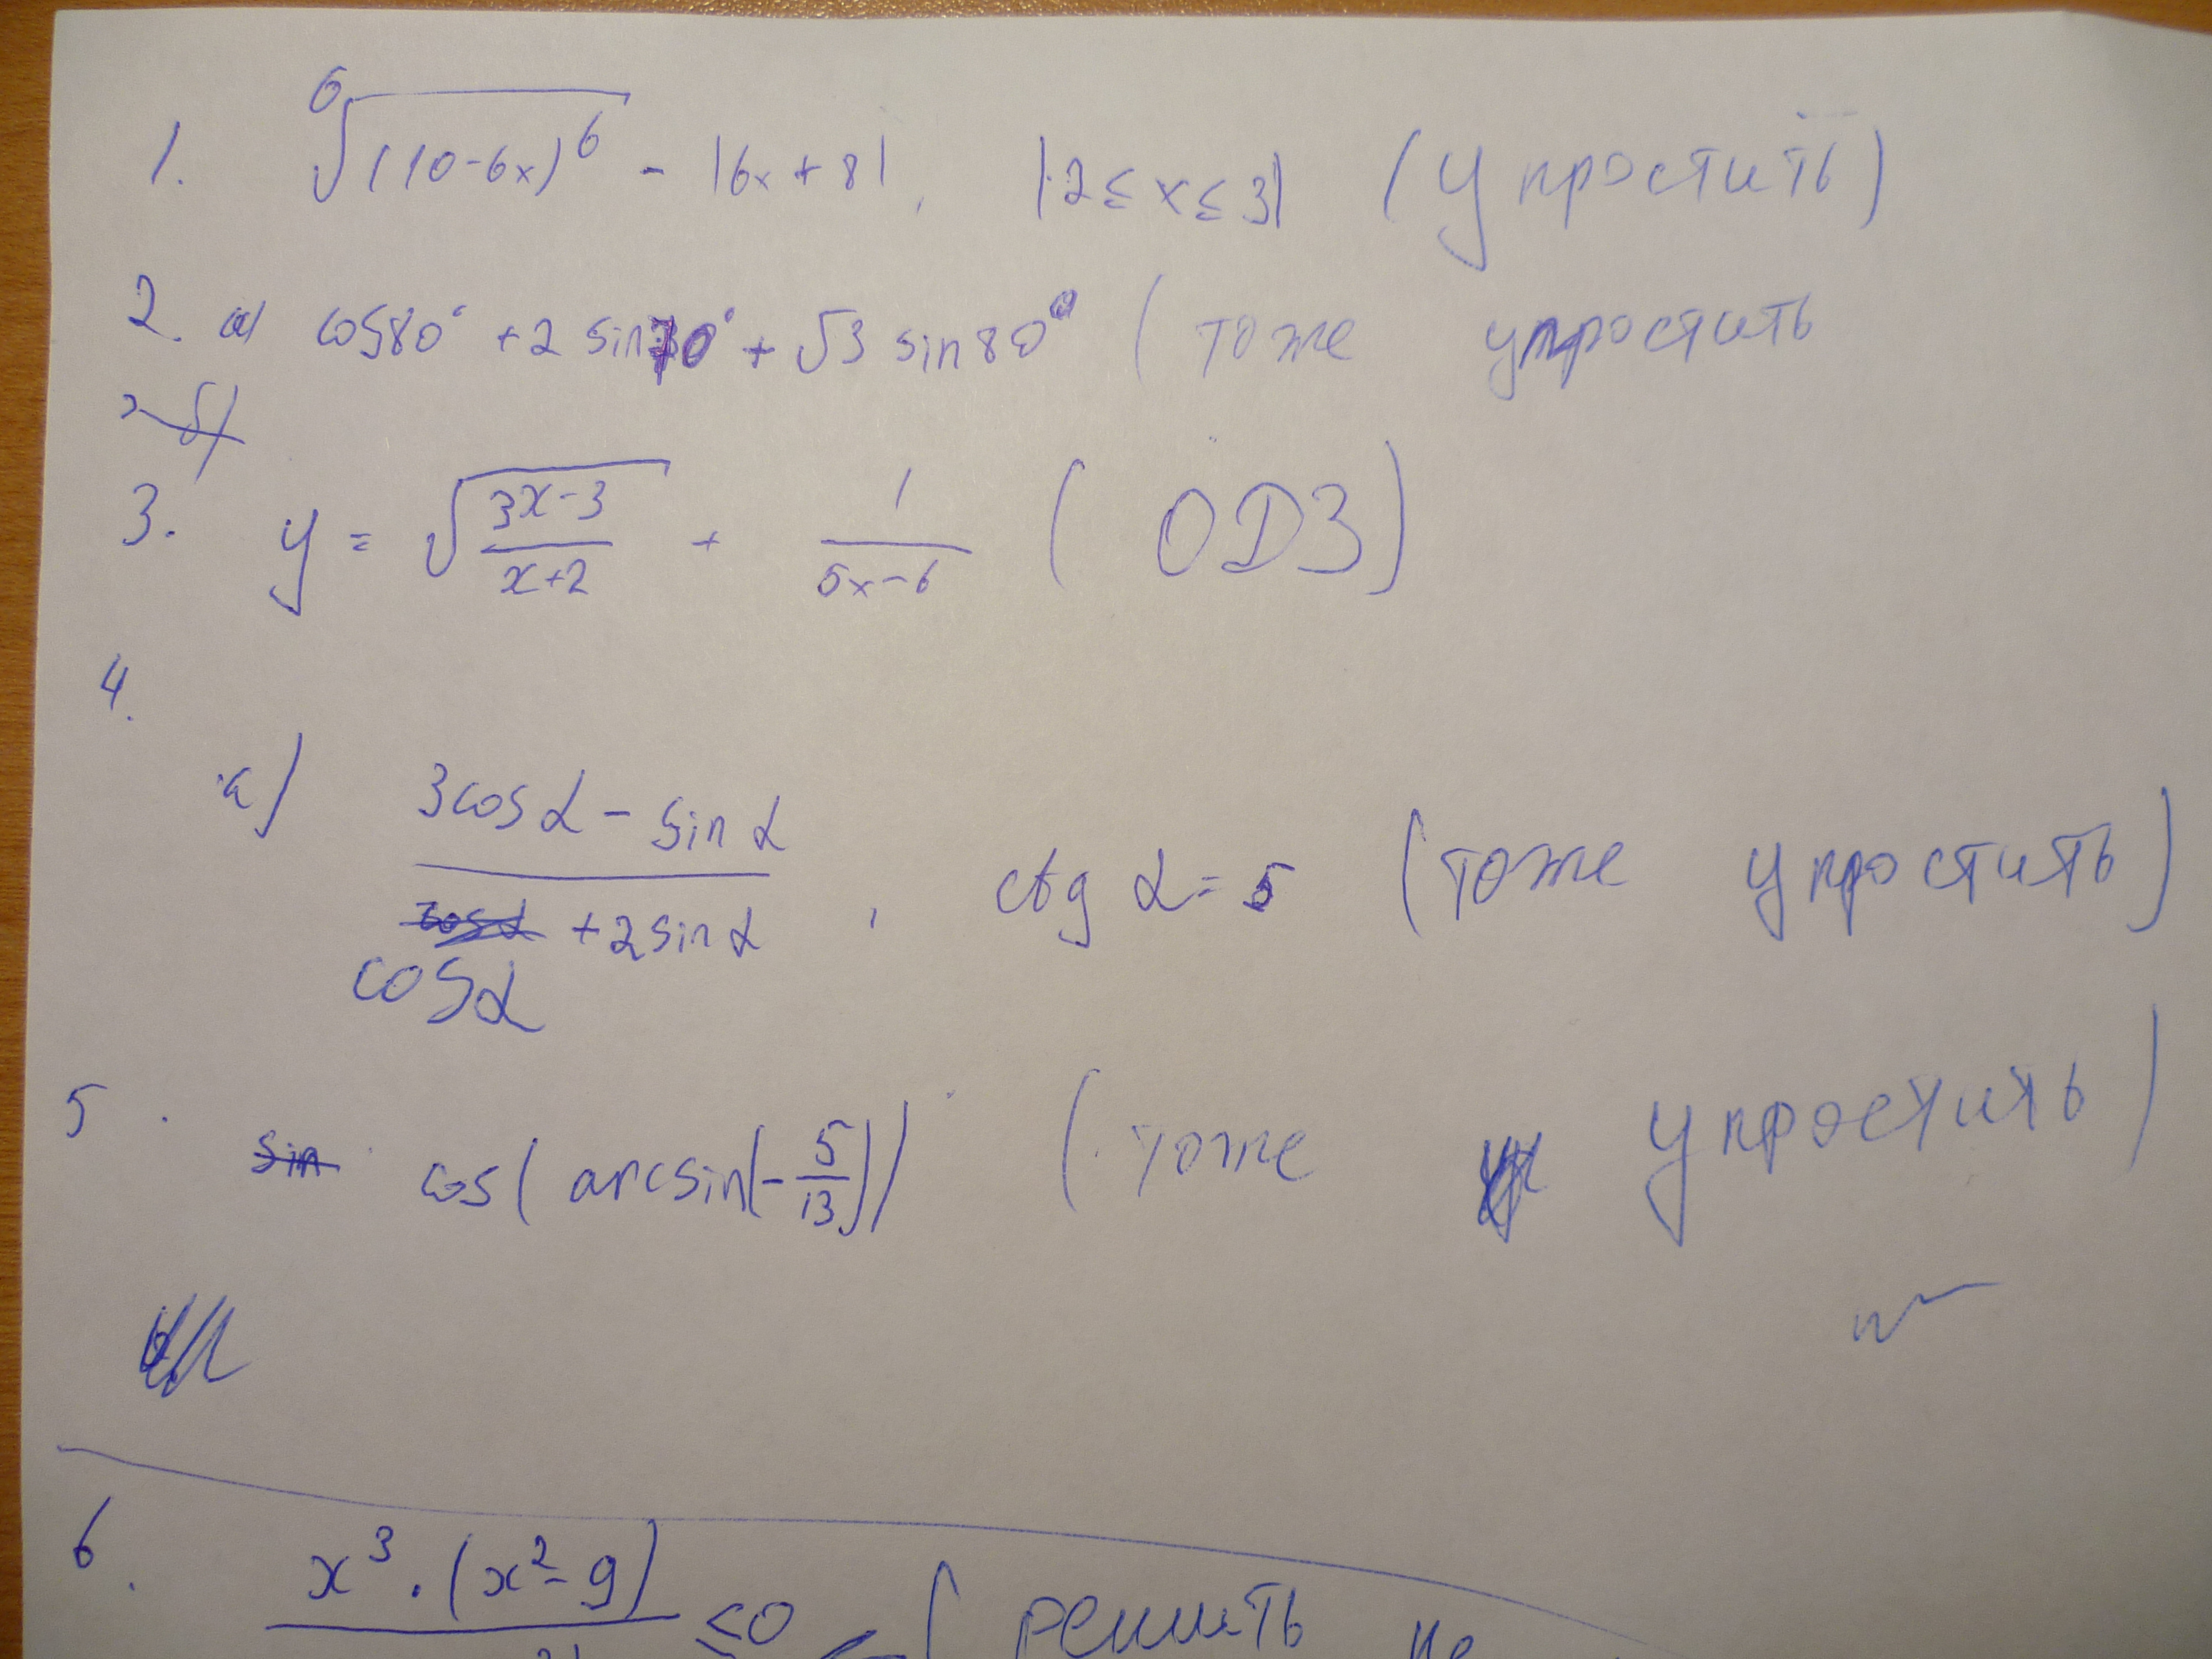 1. ⁶√(10-6x)⁶ - |6x+8|, |-2≤x≤3| (упростить)
2. а) cos80° + 2 sin70° + √3 sin80° (тоже упростить
2 б)
3. y = √((3x-3)/(x+2)) + 1/(5x-6) (ОДЗ)
4.
а) (3cosα - sinα)/(cosα + 2sinα), ctg α = 5 (тоже упростить)
5. sin cos(arcsin(-5/13)) (тоже упростить)
6. x³·(x²-9) ≤0 (решить не